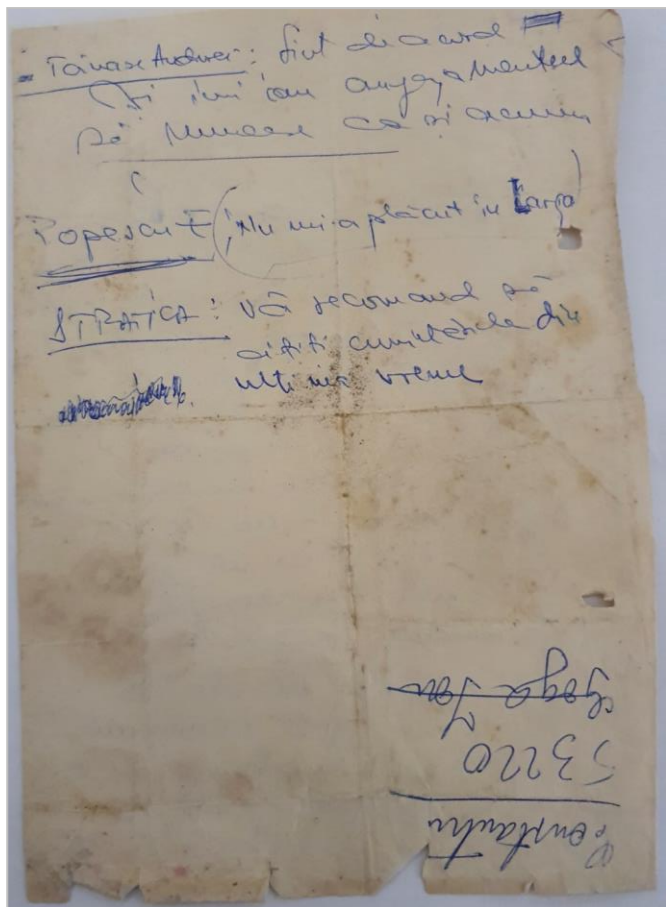 - Tănase Andrei: Sînt de acord
și îmi iau angajamentul
să muncesc ca și acum
Popescu E (; Nu mi-a plăcut în Larga)
STRATICA: Vă recomand să
citiți cumințeniile din
ultima vreme
Goga Ion
53220
Constantin